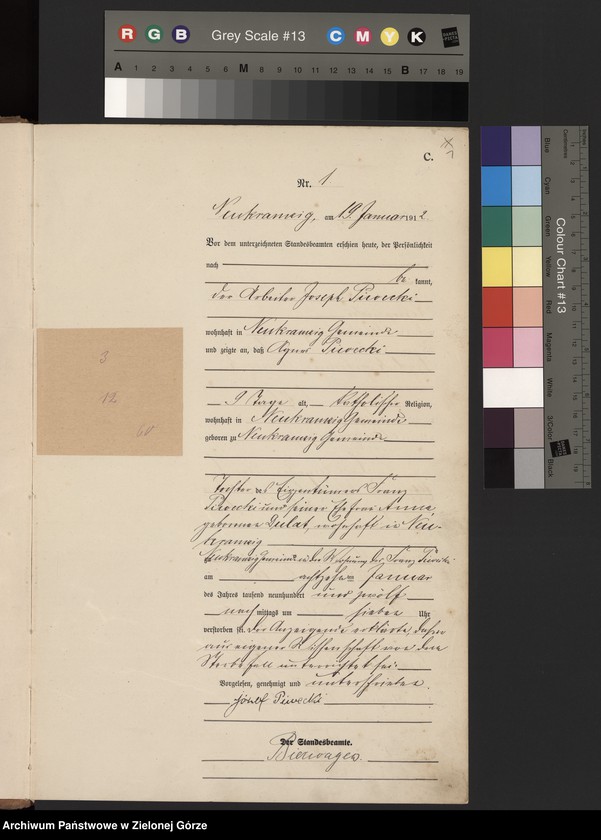 R G B Grey Scale #13 C M Y K
A 1 2 3 4 5 6 M 8 9 10 11 12 13 14 15 B 17 18 19
C.
Nr. 1
Neukramzig, am 19 Januar 1912
Vor dem unterzeichneten Standesbeamten erschien heute, der Persönlichkeit
nach
be kannt,
der Arbeiter Joseph Piwecki
wohnhaft in Neukramzig Gemeinde
und zeigte an, daß Agnes Piwecki
3
12
60
9 Tage alt, katholischer Religion,
wohnhaft in Neukramzig Gemeinde
geboren zu Neukramzig Gemeinde
Tochter des Eigentümers Franz
Piwecki und seiner Ehefrau Anna
geborenen Dulat, wohnhaft in Neu-
kramzig
Neukramzig Gemeinde in der Wohnung des Franz Piwecki
am achtzehn Januar
des Jahres tausend neunhundert und zwölf
nach mittags um sieben Uhr
verstorben sei. Der Anzeigende erklärte, daß er
aus eigener Wissenschaft von dem
Sterbefall unterrichtet sei.
Vorgelesen, genehmigt und unterschrieben.
Józef Piwecki
Der Standesbeamte.
Colour Chart #13
Centimetres
Inches
Blue
Cyan
Green
Yellow
Red
Magenta
White
3/Color
Black
Archiwum Państwowe w Zielonej Górze